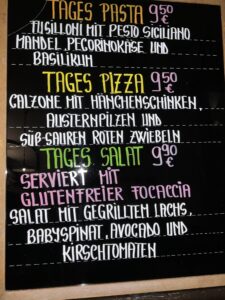 TAGES PASTA 9.50 €
FUSILLONI MIT PESTO SICILIANO
MANDEL, PECORINOKÄSE UND
BASILIKUM
TAGES PIZZA 9.50 €
CALZONE MIT HÄNCHENSCHINKEN,
AUSTERNPILZEN UND
SÜß-SAUREN ROTEN ZWIEBELN
TAGES SALAT 9.90 €
SERVIERT MIT
GLUTENFREIER FOCACCIA
SALAT MIT GEGRILLTEM LACHS,
BABYSPINAT, AVOCADO UND
KIRSCHTOMATEN